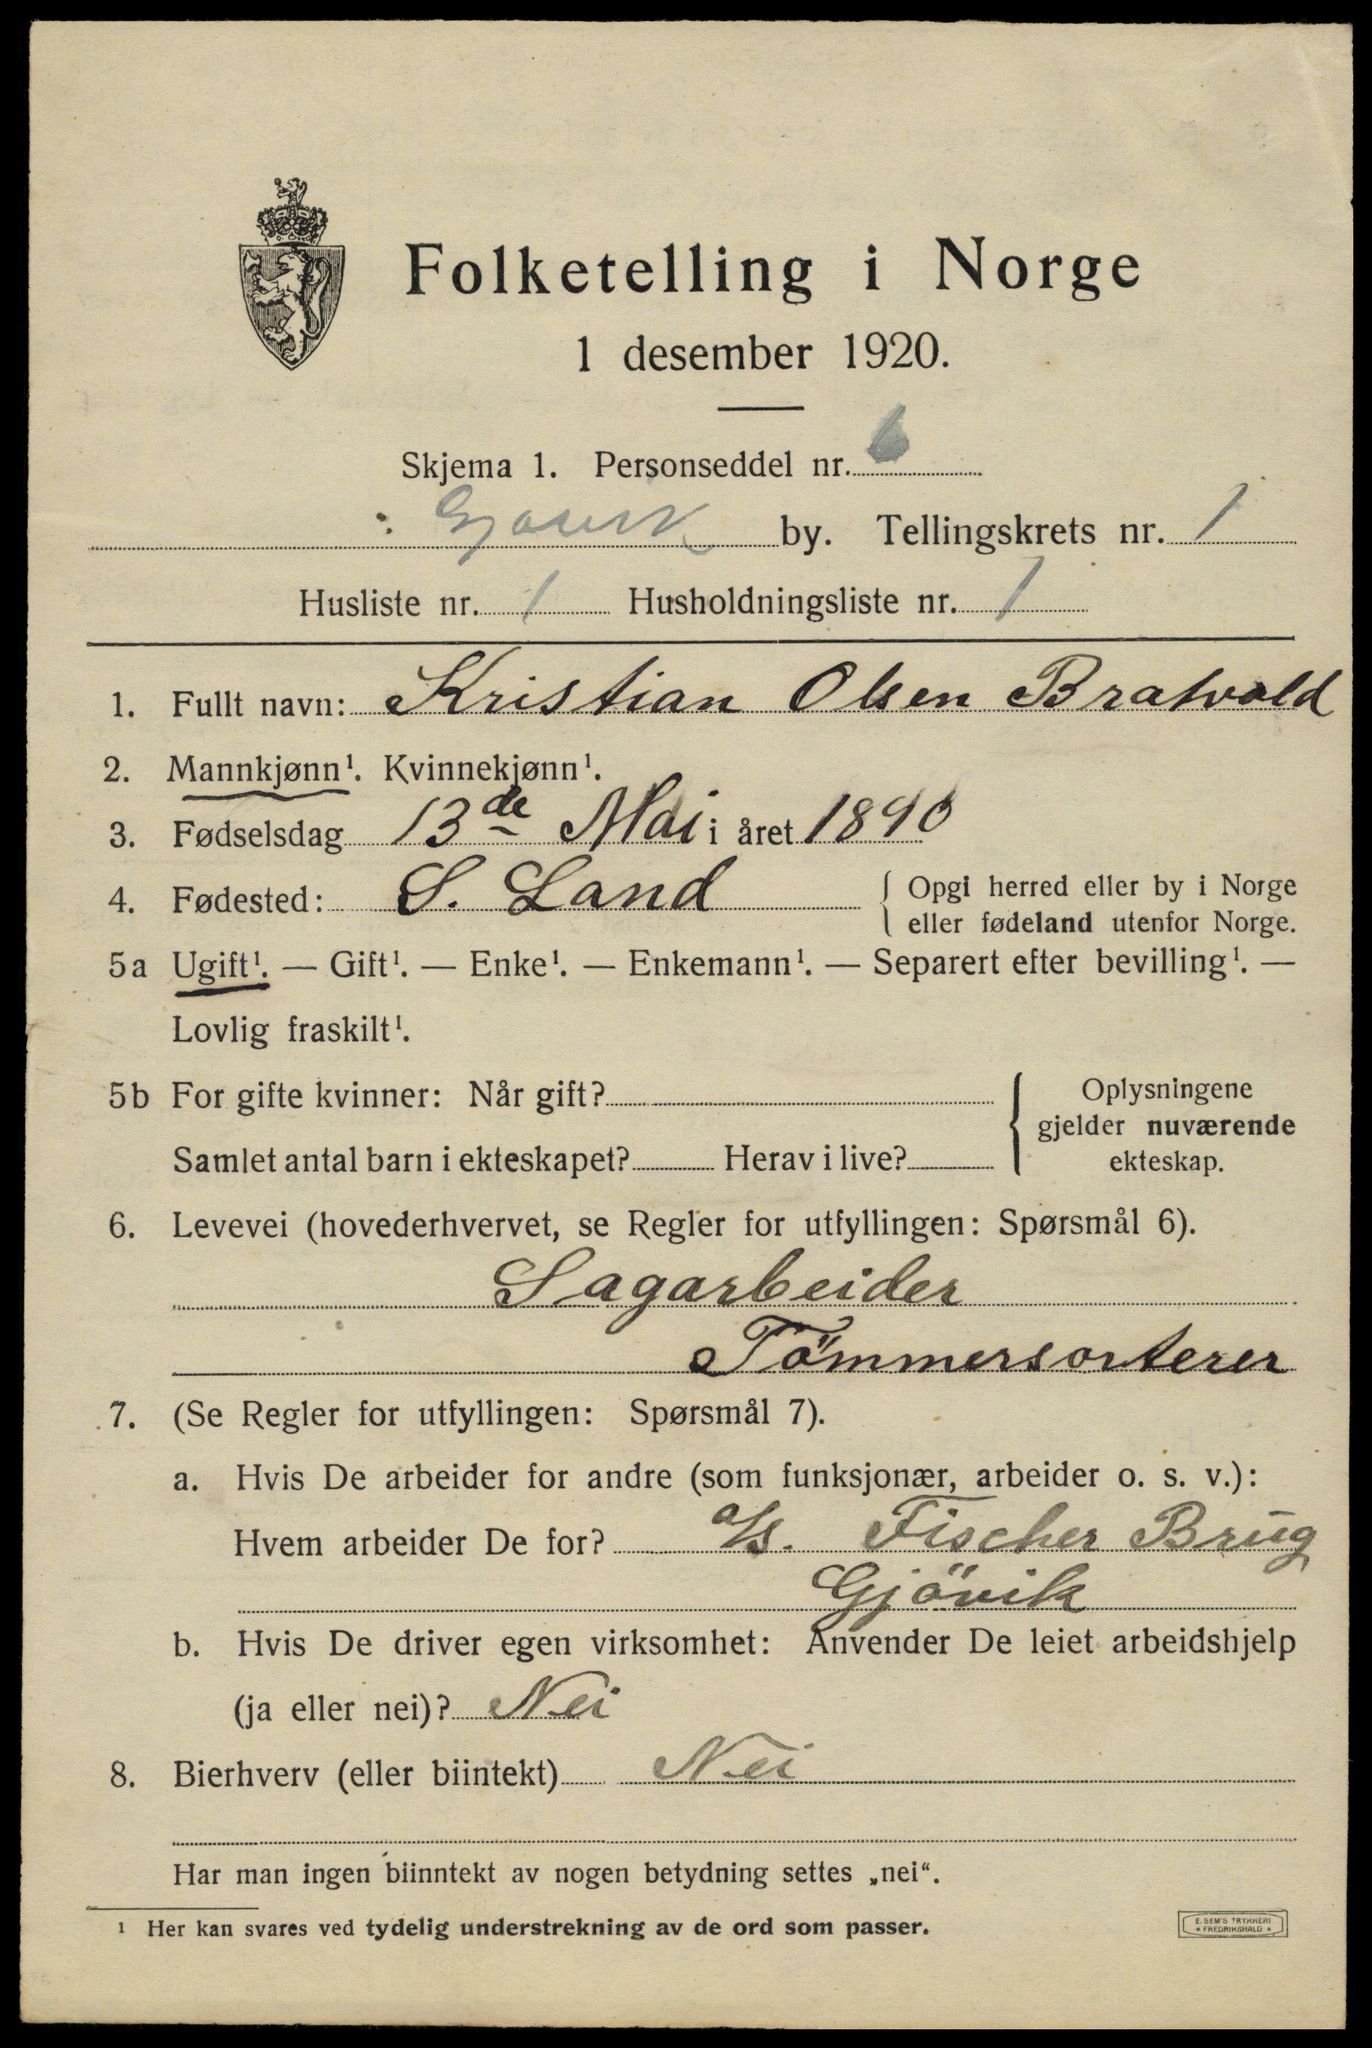 Folketelling i Norge
1 desember 1920.
Skjema 1. Personseddel nr. 6
Gjøvik by. Tellingskrets nr. 1
Husliste nr. 1 Husholdningsliste nr. 1
1. Fullt navn: Kristian Olsen Bratvold
2. Mannkjønn¹. Kvinnekjønn¹.
3. Fødselsdag 13de Mai i året 1890
4. Fødested: S. Land { Opgi herred eller by i Norge
eller fødeland utenfor Norge.
5a Ugift¹. — Gift¹. — Enke¹. — Enkemann¹. — Separert efter bevilling¹. —
Lovlig fraskilt¹.
5b For gifte kvinner: Når gift?
Samlet antal barn i ekteskapet? Herav i live?
{ Oplysningene
gjelder nuværende
ekteskap.
6. Levevei (hovederhvervet, se Regler for utfyllingen: Spørsmål 6).
Sagarbeider
Tömmersorterer
7. (Se Regler for utfyllingen: Spørsmål 7).
a. Hvis De arbeider for andre (som funksjonær, arbeider o. s. v.):
Hvem arbeider De for? a/s. Fischer Brug
Gjövik
b. Hvis De driver egen virksomhet: Anvender De leiet arbeidshjelp
(ja eller nei)? Nei
8. Bierhverv (eller biintekt) Nei
Har man ingen biinntekt av nogen betydning settes „nei“.
¹ Her kan svares ved tydelig understrekning av de ord som passer.
E. SEM'S TRYKKERI
* FREDRIKSHALD *